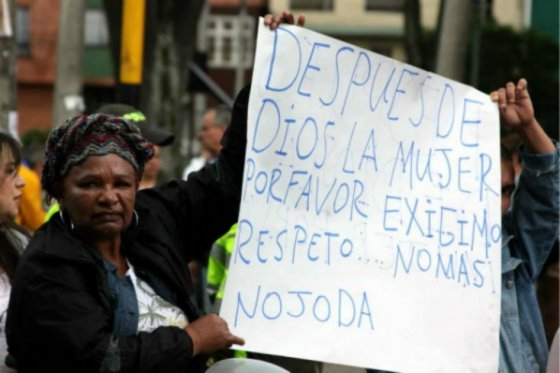 DESPUES DE
DIOS LA MUJER
PORFAVOR EXIGIMO
RESPETO.... NOMAS!
NOJODA